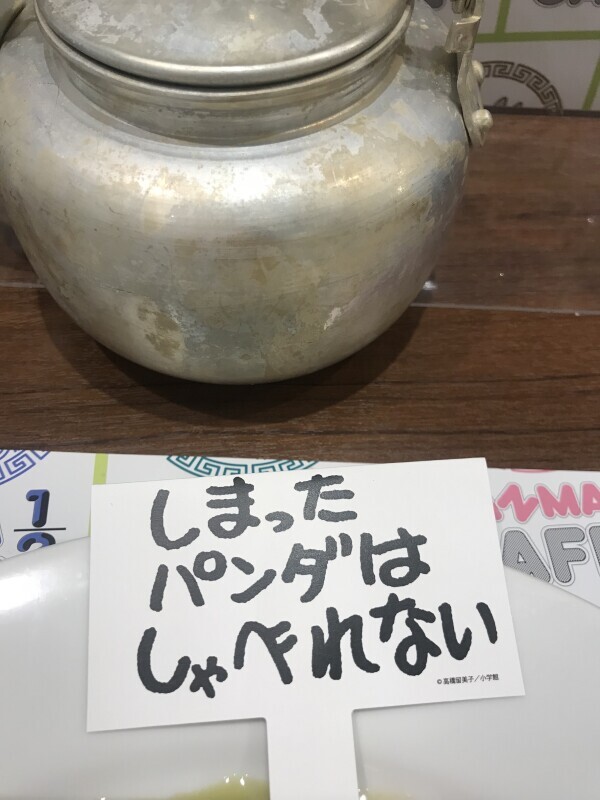 しまった
パンダは
しゃべれない
©高橋留美子／小学館
1/2
MA
AF